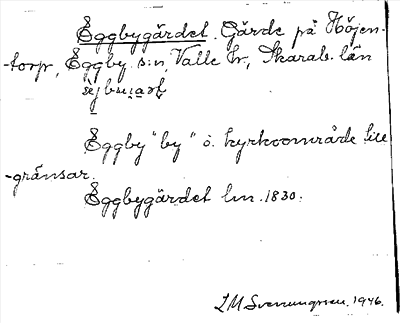 Eggbygärdet. Gärde på Höjen-
-torp, Eggby s:n, Valle hr, Skarab. län
Eggby "by" o. kyrkoområde till
-gränsar.
Eggbygärdet lm. 1830.
1946.